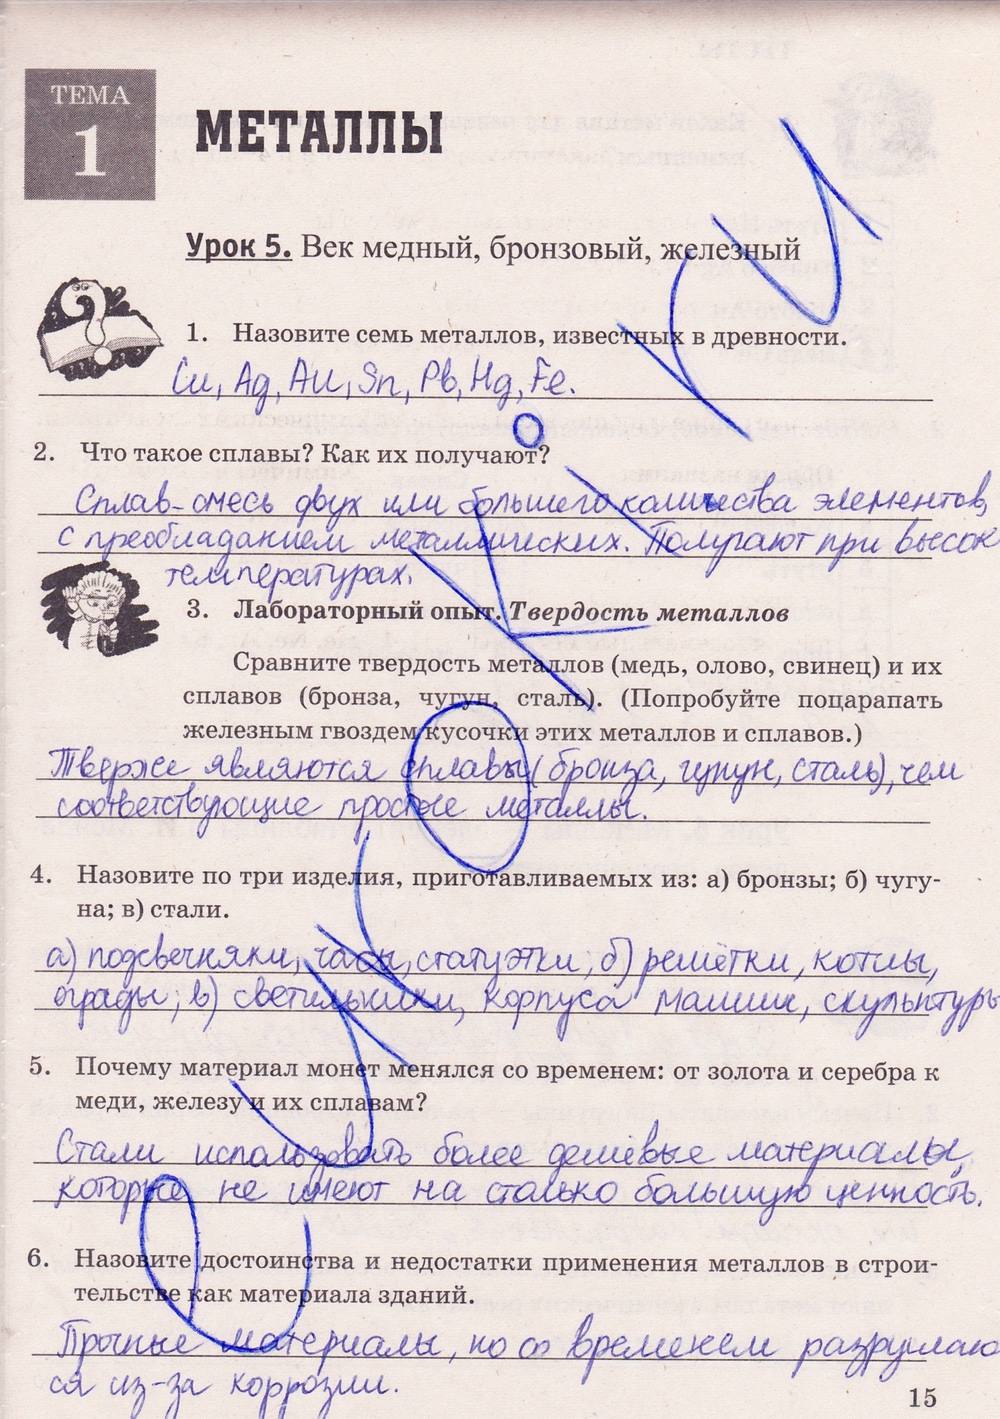 ТЕМА
1
МЕТАЛЛЫ
Урок 5. Век медный, бронзовый, железный
1. Назовите семь металлов, известных в древности.
Cu, Ag, Au, Sn, Pb, Hg, Fe.
2. Что такое сплавы? Как их получают?
Сплав-смесь двух или большего количества элементов,
с преобладанием металлических. Получают при высок
температурах.
3. Лабораторный опыт. Твердость металлов
Сравните твердость металлов (медь, олово, свинец) и их
сплавов (бронза, чугун, сталь). (Попробуйте поцарапать
железным гвоздем кусочки этих металлов и сплавов.)
Тверже являются сплавы (бронза, чугун, сталь), чем
соответствующие простые металлы.
4. Назовите по три изделия, приготавливаемых из: а) бронзы; б) чугу-
на; в) стали.
а) подсвечняки, часы, статуэтки; б) решётки, котлы,
ограды; в) светильники, корпуса машин, скульптуры
5. Почему материал монет менялся со временем: от золота и серебра к
меди, железу и их сплавам?
Стали использовать более дешёвые материалы,
которые не имеют на столько большую ценность.
6. Назовите достоинства и недостатки применения металлов в строи-
тельстве как материала зданий.
Прочные материалы, но со временем разрушаю
ся из-за коррозии.
15